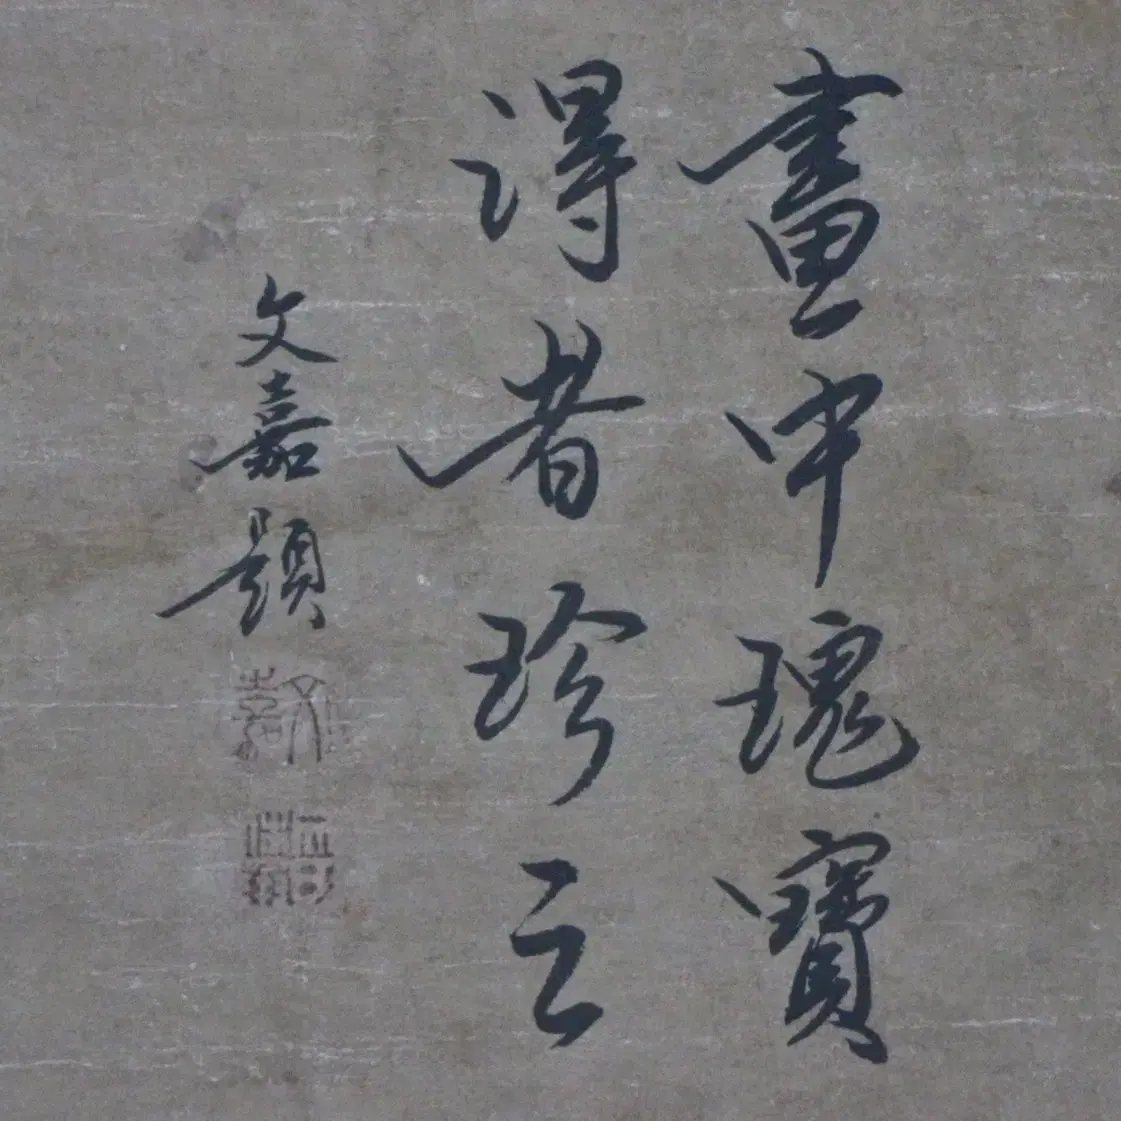 畫中瑰寶
得者珍之
文嘉題
文嘉